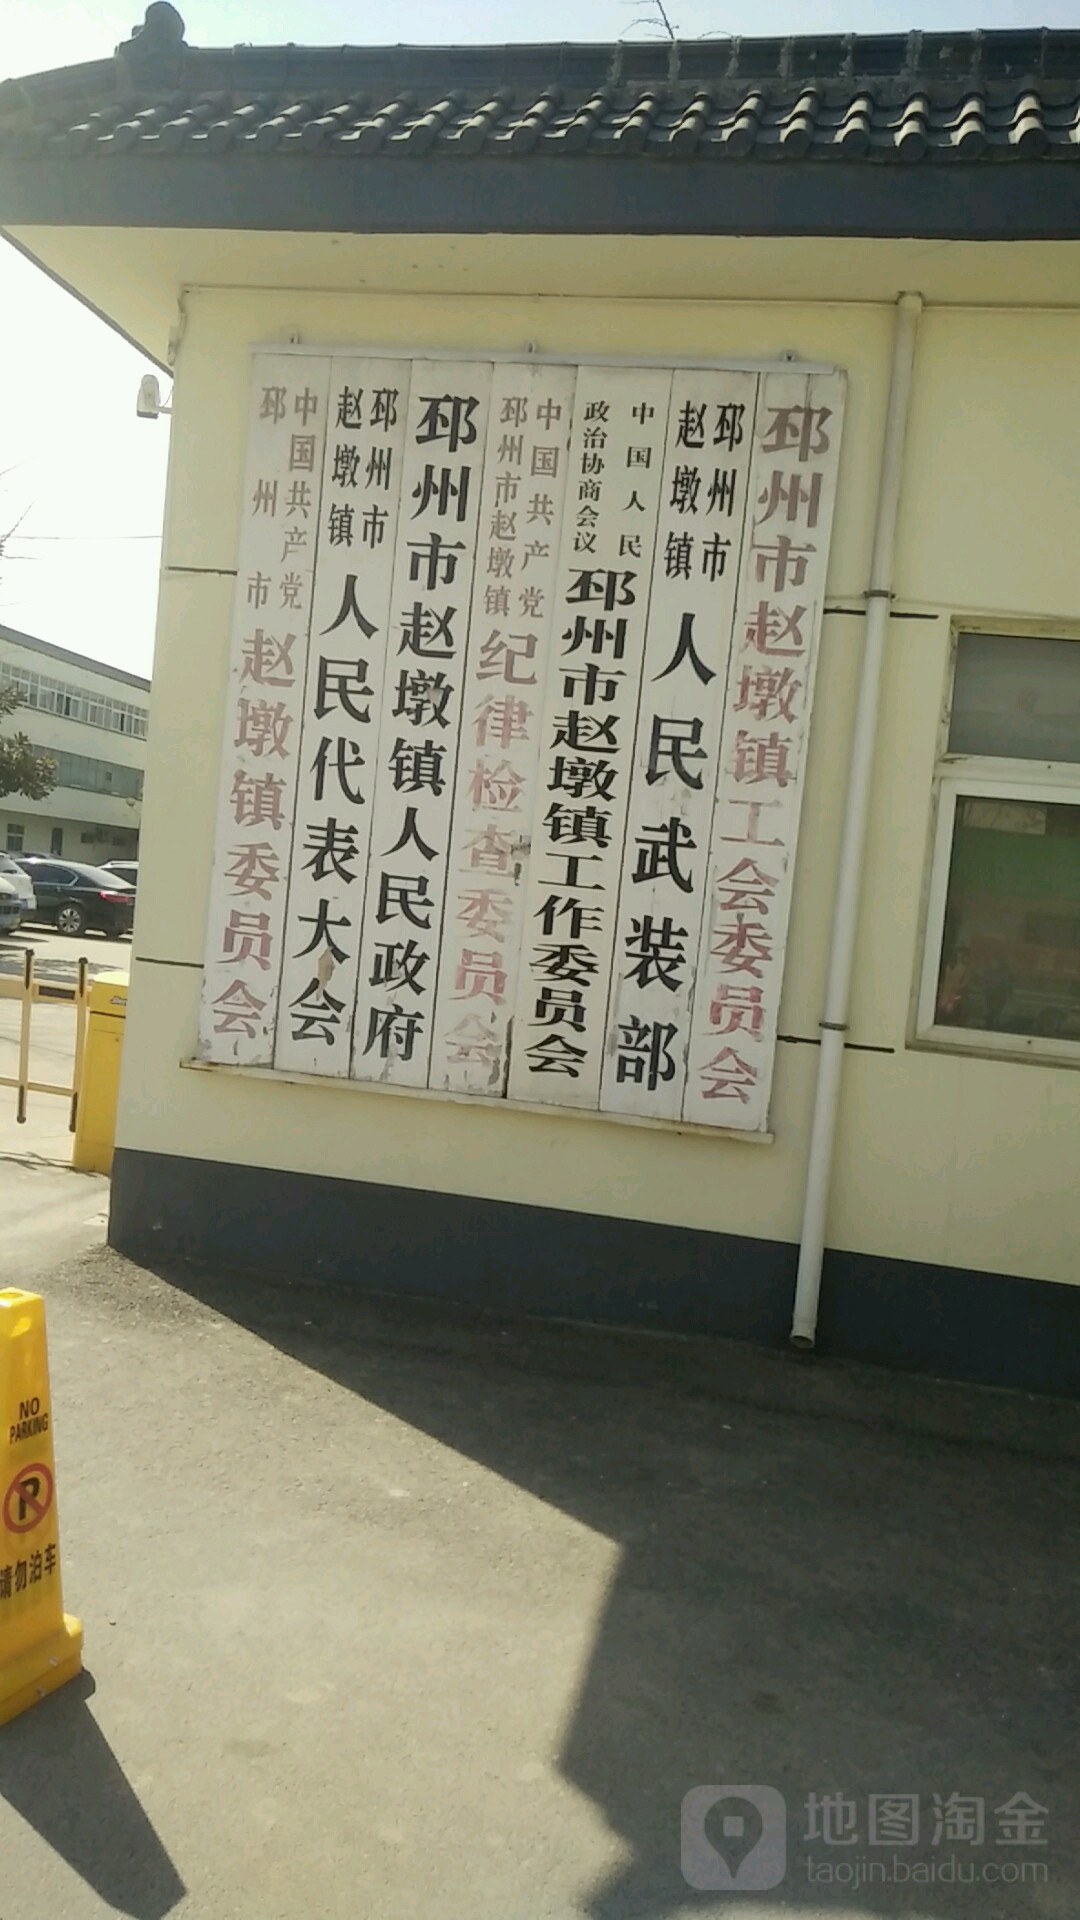 中国共产党
邳州市
赵墩镇委员会
邳州市
赵墩镇
人民代表大会
邳州市赵墩镇人民政府
中国共产党
邳州市赵墩镇
纪律检查委员会
中国人民
政治协商会议
邳州市赵墩镇工作委员会
邳州市
赵墩镇
人民武装部
邳州市赵墩镇工会委员会
NO
PARKING
P
请勿泊车
地图淘金
taojin.baidu.com